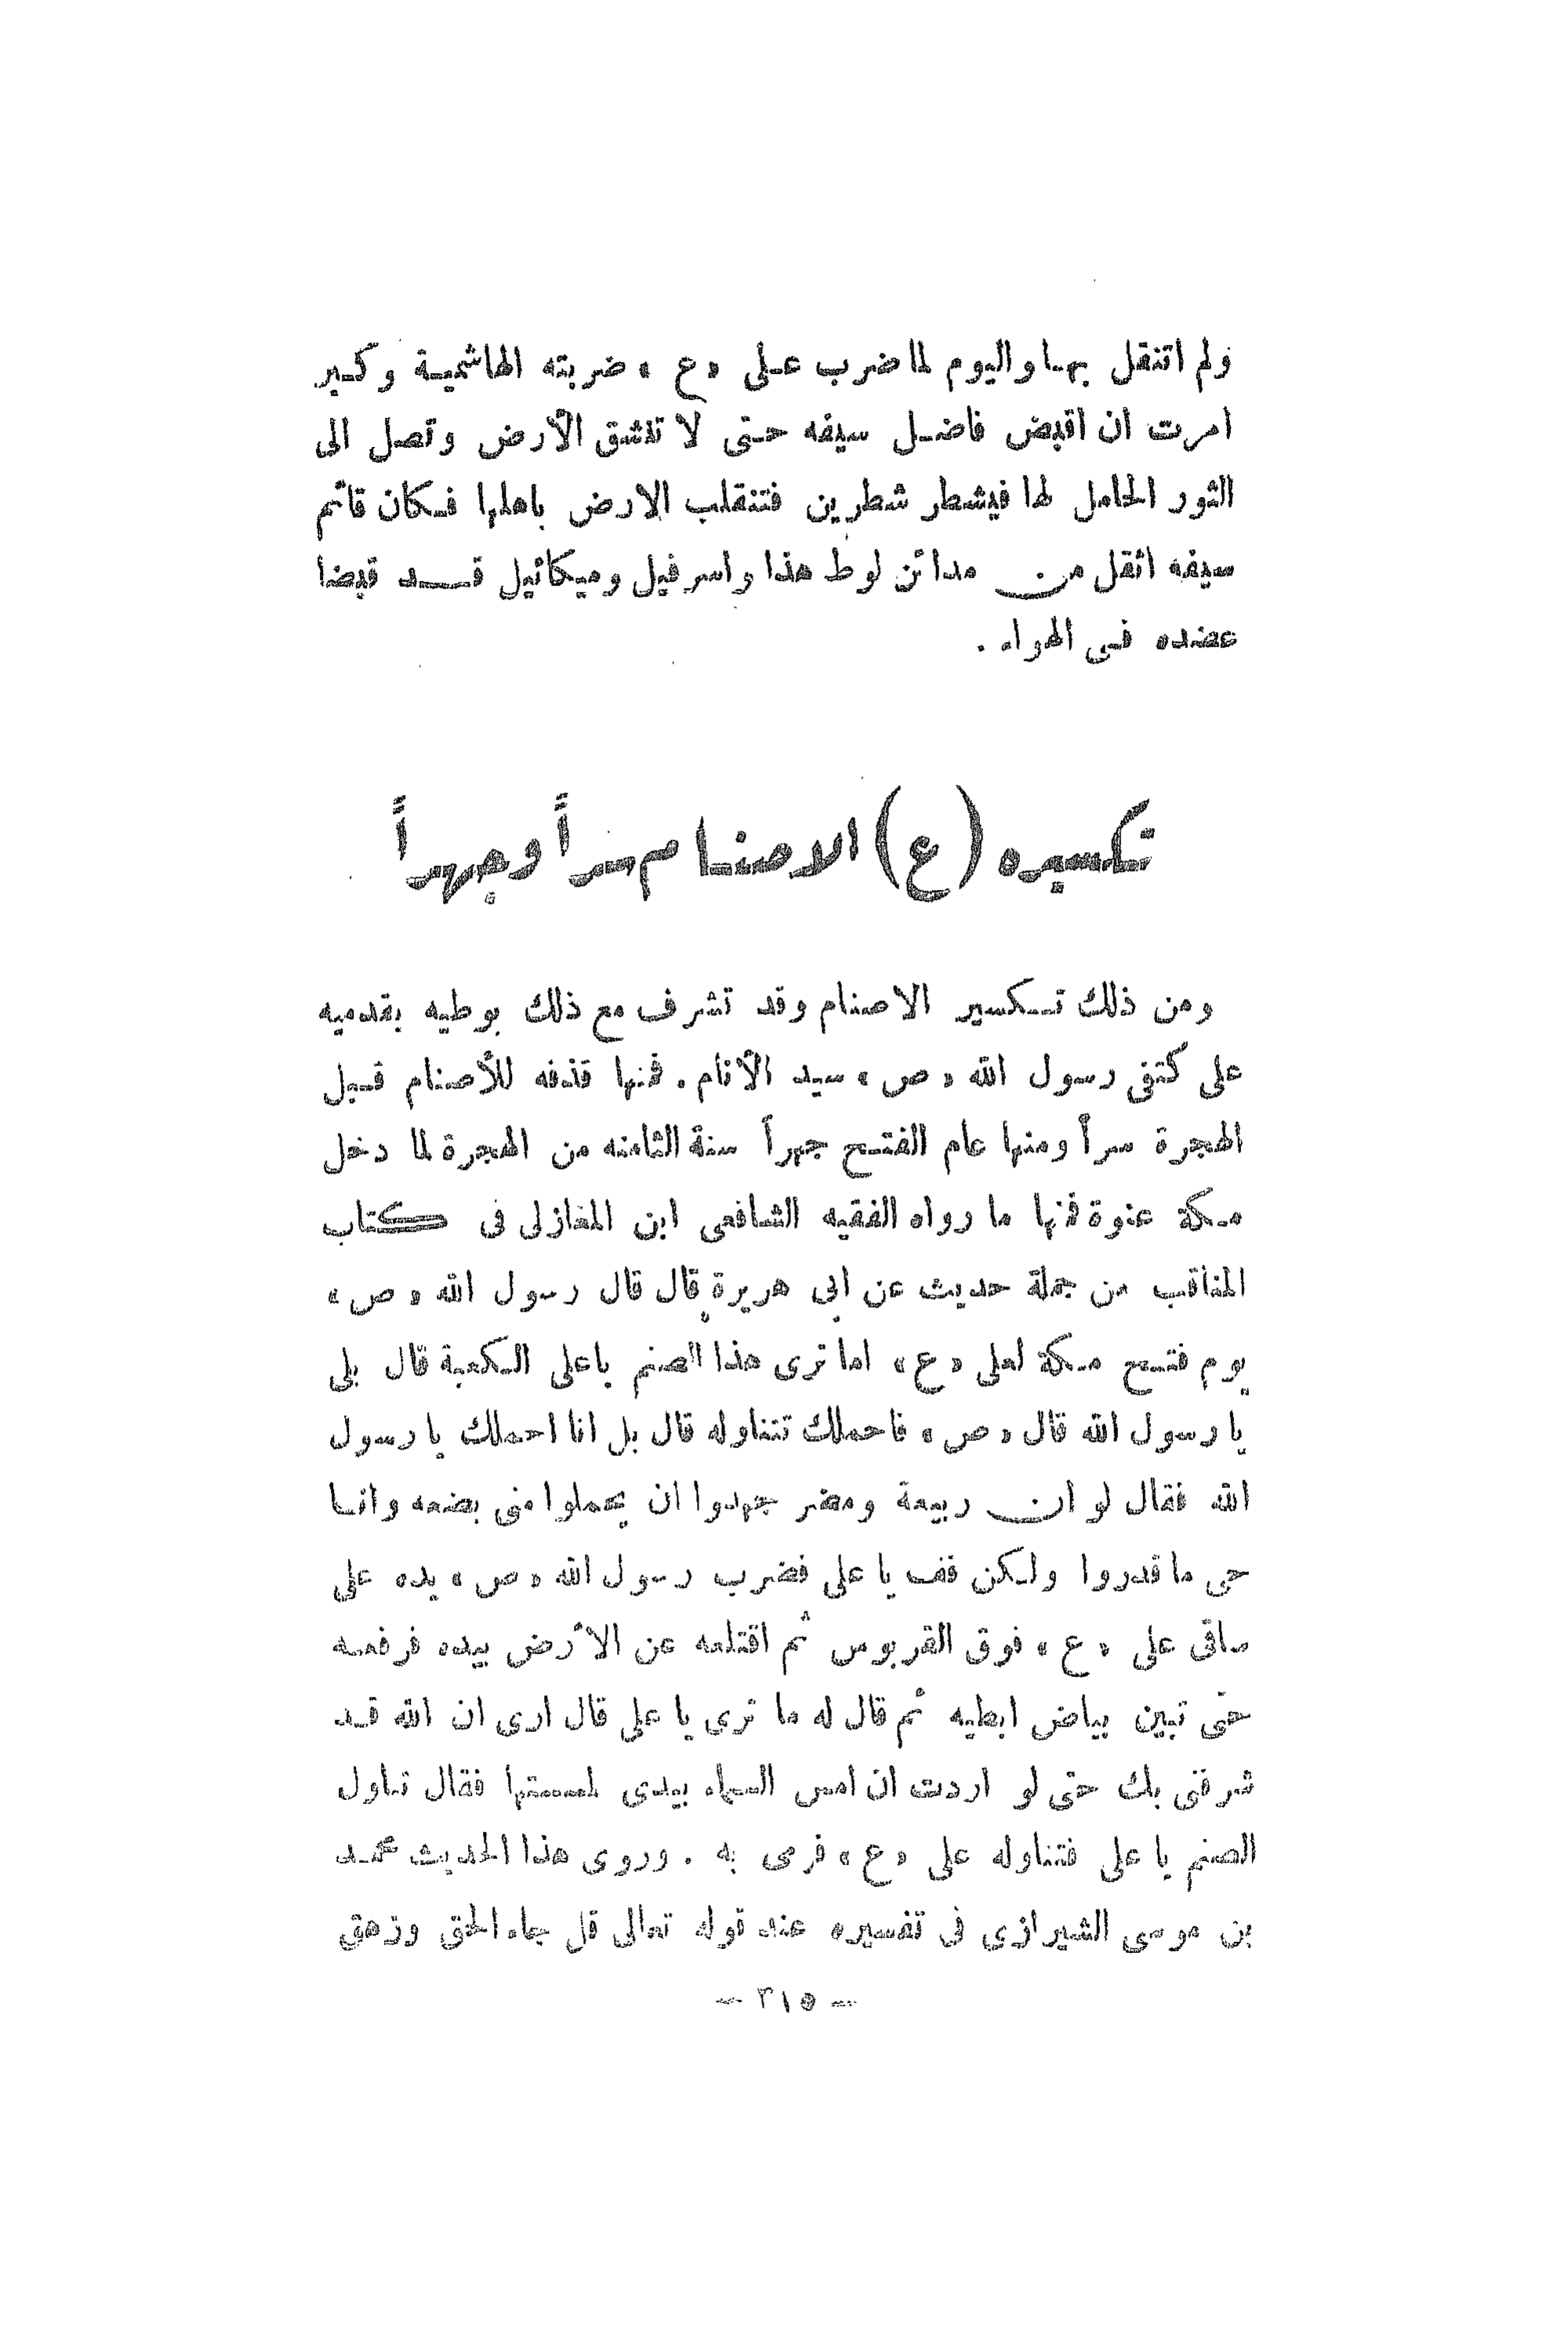 ولم اتنقل بها واليوم لما ضرب على «ع» ضربته الهاشمية وكبر
امرت ان اقبض فاضل سيفه حتى لا تنشق الأرض وتصل الى
الثور الحامل لها فيشطر شطرين فتنقلب الارض باهلها فكان قائم
سيفه اثقل من مدائن لوط هذا واسرفيل وميكائيل قد قبضا
عضده فى الهواء .
تكسيره (ع) الاصنام سراً وجهراً
ومن ذلك تكسير الاصنام وقد تشرف مع ذلك بوطيه بقدميه
على كتفى رسول الله «ص» سيد الأنام . فمنها قذفه للأصنام قبل
الهجرة سراً ومنها عام الفتح جهراً سنة الثامنه من الهجرة لما دخل
مكة عنوة فمنها ما رواه الفقيه الشافعى ابن المغازلى فى كتاب
المناقب من جملة حديث عن ابى هريرة قال قال رسول الله «ص»
يوم فتح مكة لعلى «ع» اما ترى هذا الصنم باعلى الكعبة قال بلى
يا رسول الله قال «ص» فاحملك تتناوله قال بل انا احملك يا رسول
الله فقال لو ان ربيعة ومضر جهدوا ان يحملوا منى بضعه وانا
حى ما قدروا ولكن قف يا على فضرب رسول الله «ص» يده على
ساقى على «ع» فوق القربوس ثم اقتلعه عن الأرض بيده فرفعه
حتى تبين بياض ابطيه ثم قال له ما ترى يا على قال ارى ان الله قد
شرفنى بك حتى لو اردت ان امس السماء بيدى لمسستها فقال تناول
الصنم يا على فتناوله على «ع» فرمى به . وروى هذا الحديث محمد
بن موسى الشيرازى فى تفسيره عند قوله تعالى قل جاء الحق وزهق
— ٣١٥ —